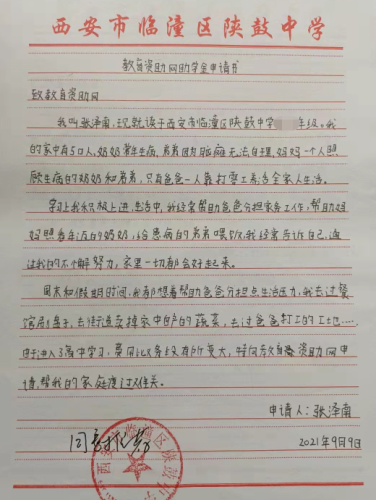 西安市临潼区陕鼓中学
教育资助网助学金申请书
致教育资助网
我叫张泽南,现就读于西安市临潼区陕鼓中学 年级。我
的家中有5口人,奶奶常年生病,弟弟因为脑瘫无法自理,妈妈一个人照
顾生病的奶奶和弟弟,只有爸爸一人靠打零工养活全家人生活。
学习上我积极上进,生活中,我经常帮助爸爸分担家务工作,帮助妈
妈照看年迈的奶奶,给患病的弟弟喂饭,我经常告诉自己,通
过我的不懈努力,家里一切都会好起来。
周末和假期时间,我都想着帮助爸爸分担点生活压力,我去过餐
馆刷盘子,去街道卖掉家中产的蔬菜,去过爸爸打工的工地……
由于进入高中学习,费用比以前有所变大,特向教育资助网申
请,帮我的家庭度过难关。
申请人:张泽南
2021年9月9日
西安市临潼区陕鼓中学